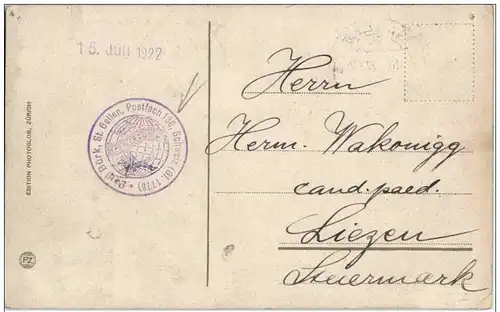 15. Juli 1922
Bürk, St. Gallen, Postfach 130, Schweiz (Gl. 1778)
EDITION PHOTOGLOB, ZÜRICH
PZ
Herrn
Herm. Wakonigg
cand. paed.
Liezen
Steiermark